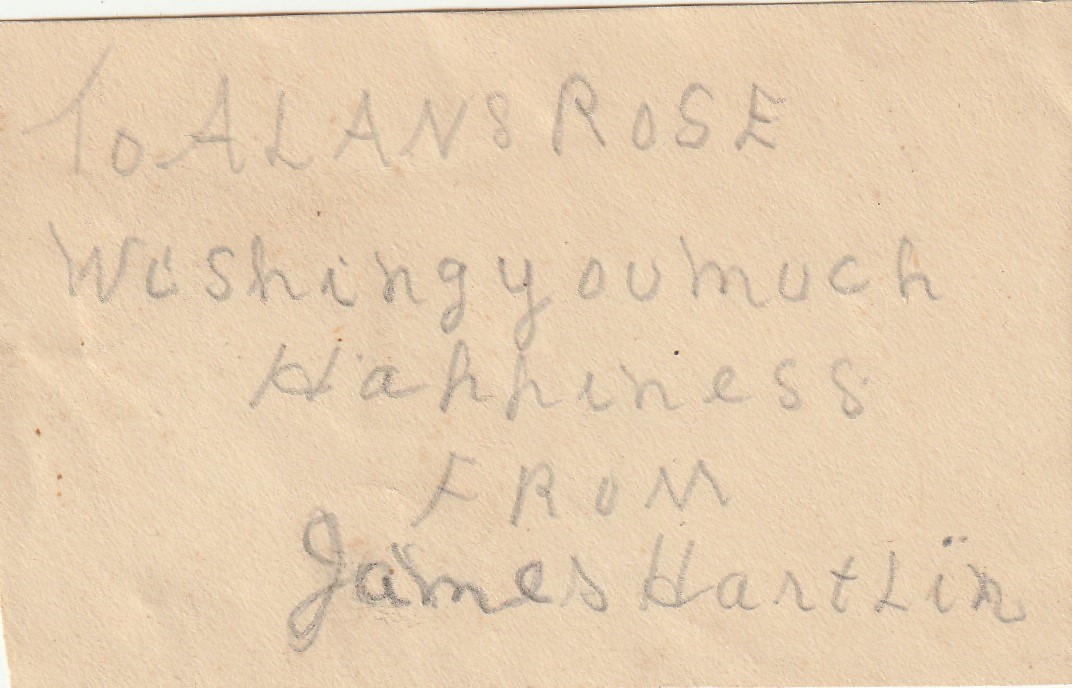 To ALAN & ROSE
Wishing you much
Happiness
FROM
James Hartlin